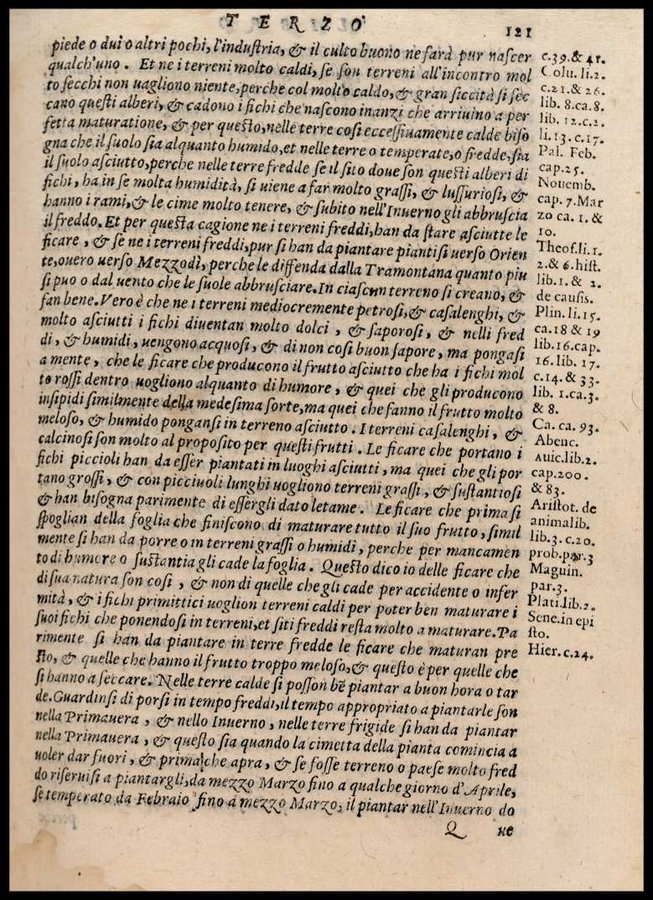 TERZO
121
piede o dui o altri pochi, l'industria, & il culto buono ne farà pur nascer
qualch'uno. Et ne i terreni molto caldi, se son terreni all'incontro mol
to secchi non uagliono niente, perche col molto caldo, & gran siccità si sec
cano questi alberi, & cadono i fichi che nascono inanzi che arriuino a per
fetta maturatione, & per questo, nelle terre cosi eccessiuamente calde biso
gna che il suolo sia alquanto humido, et nelle terre o temperate, o fredde, sia
il suolo asciutto, perche nelle terre fredde se il sito doue son questi alberi di
fichi, ha in se molta humidità, si uiene a far molto grassi, & lussuriosi, &
hanno i rami, & le cime molto tenere, & subito nell'Inuerno gli abbruscia
il freddo. Et per questa cagione ne i terreni freddi, han da stare asciutte le
ficare, & se ne i terreni freddi, pur si han da piantare piantisi uerso Orien
te, ouero uerso Mezzodì, perche le diffenda dalla Tramontana quanto piu
si puo o dal uento che le suole abbrusciare. In ciascun terreno si creano, &
fan bene. Vero è che ne i terreni mediocremente petrosi, & casalenghi, &
molto asciutti i fichi diuentan molto dolci, & saporosi, & nelli fred
di, & humidi, uengono acquosi, & di non cosi buon sapore, ma pongasi
a mente, che le ficare che producono il frutto asciutto che ha i fichi mol
to rossi dentro uogliono alquanto di humore, & quei che gli producono
insipidi similmente della medesima sorte, ma quei che fanno il frutto molto
meloso, & humido pongansi in terreno asciutto. I terreni casalenghi, &
calcinosi son molto al proposito per questi frutti. Le ficare che portano i
fichi piccioli han da esser piantati in luoghi asciutti, ma quei che gli por
tano grossi, & con picciuoli lunghi uogliono terreni grassi, & sustantiosi
& han bisogna parimente di essergli dato letame. Le ficare che prima si
spoglian della foglia che finiscono di maturare tutto il suo frutto, simil
mente si han da porre o in terreni grassi o humidi, perche per mancamen
to di humore o sustantia gli cade la foglia. Questo dico io delle ficare che
di sua natura son cosi, & non di quelle che gli cade per accidente o infer
mità, & i fichi primitticci uoglion terreni caldi per poter ben maturare i
suoi fichi che ponendosi in terreni, et siti freddi resta molto a maturare. Pa
rimente si han da piantare in terre fredde le ficare che maturan pre
sto, & quelle che hanno il frutto troppo meloso, & questo è per quelle che
si hanno a seccare. Nelle terre calde si posson bẽ piantar a buon hora o tar
de. Guardinsi di porsi in tempo freddi, il tempo appropriato a piantarle son
nella Primauera, & nello Inuerno, nelle terre frigide si han da piantar
nella Primauera, & questo sia quando la cimetta della pianta comincia a
uoler dar fuori, & prima che apra, & se fosse terreno o paese molto fred
do riseruisi a piantargli, da mezzo Marzo fino a qualche giorno d'Aprile,
se temperato da Febraio fino a mezzo Marzo, il piantar nell'Inuerno do
Q
ue
c.39.& 41.
Colu.li.2.
c.21.& 26.
lib. 8.ca.8.
lib. 12.c.2.
li.13.c.17.
Pal. Feb.
cap.25.
Nouemb.
cap.7.Mar
zo ca. 1. &
10.
Theof.li.1.
2.& 6.hist.
lib.1.& 2.
de causis.
Plin.li.15.
ca.18 & 19
lib.16.cap.
16.lib. 17.
c.14.& 33.
lib. 1.ca.3.
& 8.
Ca. ca. 93.
Abenc.
Auic.lib.2.
cap.200.
& 83.
Aristot. de
animalib.
lib.3.c.20.
prob.par.3
Maguin.
par.3.
Plati.lib.2.
Sene.in epi
sto.
Hier.c.24.